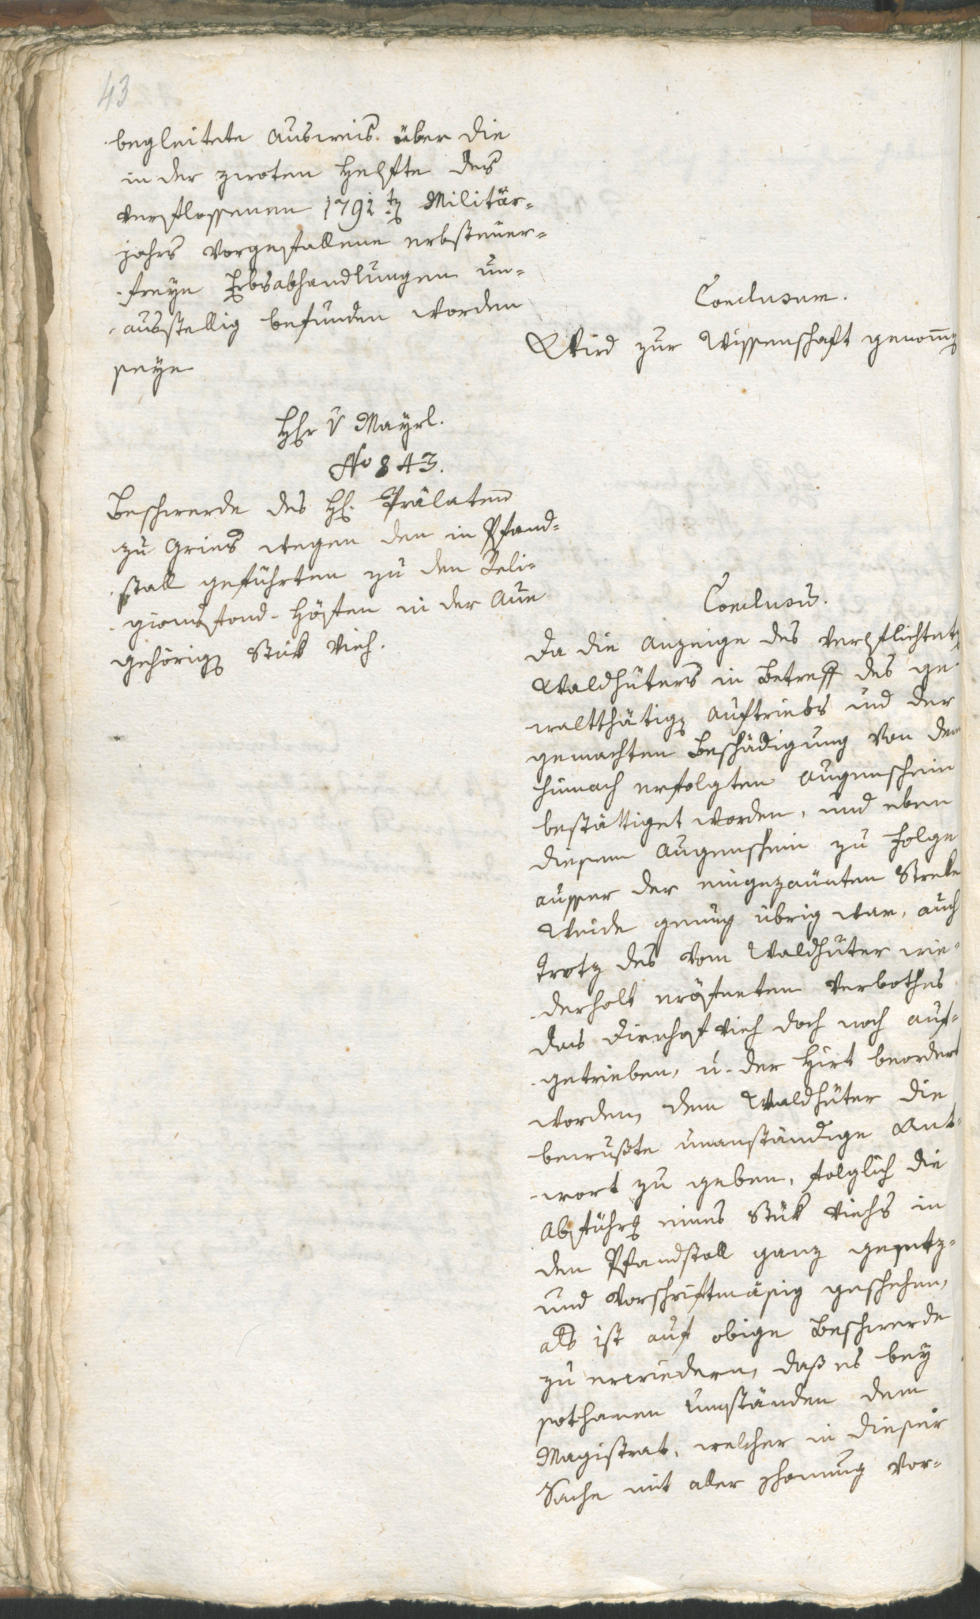 43
begleitete Ausweis über die
in der zwoten Helfte des
verflossenen 1791 Militär-
jahrs vorgefallene erbsteuer-
freye Erbsabhandlungen un-
ausstellig befunden worden
seye
Conclusum.
Wird zur Wissenschaft genomen
Hr v Mayrl.
No 843.
Beschwerde des H. Prälaten
zu Gries wegen den in Pfand-
stall geführten zu den Reli-
gionsfond-Höfen in der Aue
gehörigen Stük Vieh.
Conclusum.
Da die Anzeige des verpflichteten
Waldhüters in Betreff des ge-
waltthätigen Auftriebs und der
gemachten Beschädigung von dem
hinnach erfolgten Augenschein
bestättiget worden, und eben
diesem Augenschein zu Folge
ausser der eingezäunten Streke
Weide genug übrig war, auch
trotz des vom Waldhüter wie-
derholt eröfneten Verbothes
das Vieh doch noch auf-
getrieben, u. der Hirt beordert
worden, dem Waldhüter die
bewußte unanständige Ant-
wort zu geben, folglich die
Abführung eines Stük Viehs in
den Pfandstall ganz gesetz-
und vorschriftmäsig geschehen,
als ist auf obige Beschwerde
zu erwiedern, daß es bey
sothanen Umständen dem
Magistrat, welcher in dieser
Sache mit aller Schonung vor-